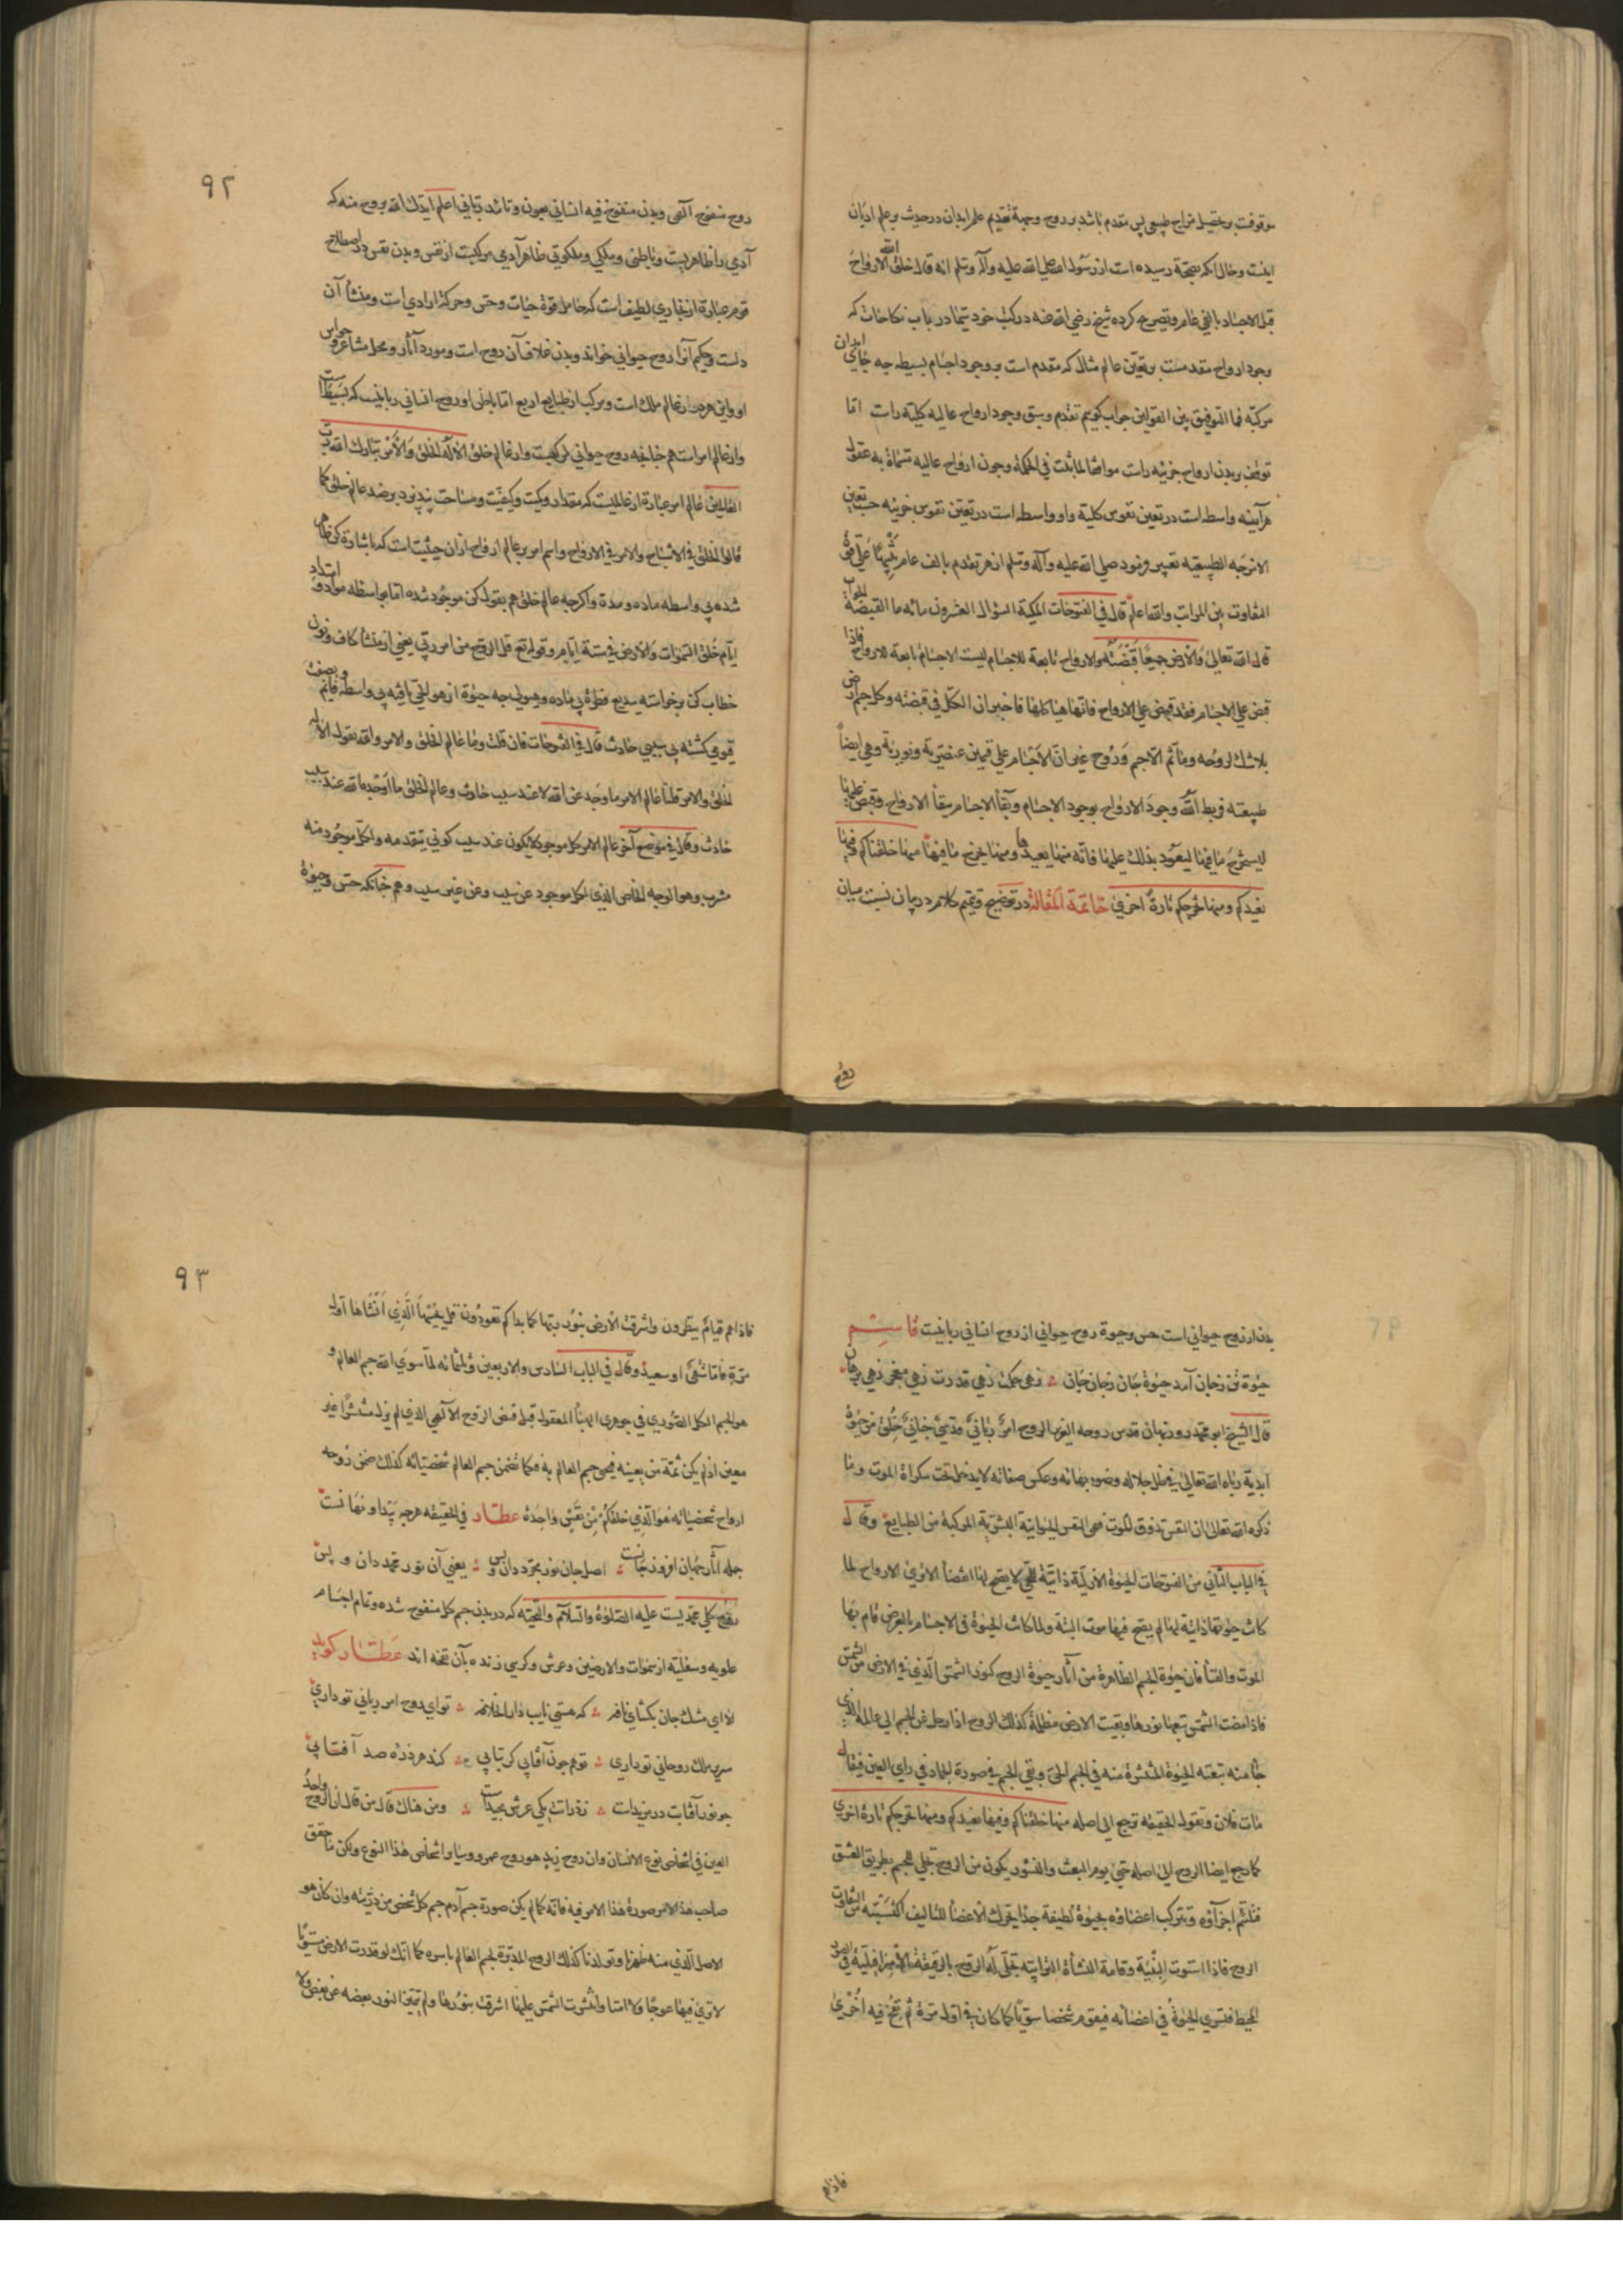 موقوفست بر تحصیل مزاج طبیعی پس مقدم باشد بر روح وجهة تقدیم علم ابدان در حدیث بر علم ادیان
اینست وحال آنکه بصحّة رسیده است از رسول الله صلی الله علیه وآله وسلم انه قال خلق الله الارواح
قبل الاجساد بالفی عام وتصریح کرده شیخ رضی الله عنه در کتب خود سیّما در باب نکاحات که
وجود ارواح مقدمست بر تعیّن عالم مثال که مقدم است بر وجود اجسام بسیطه چه جای ابدان
مرکبّه فما التوفیق بین القولین جواب کوییم تقدم وسبق وجود ارواح عالیه کلیّه راست امّا
توقف بر بدن ارواح جزئیه راست موافقا لما ثبت فی الحکمة وچون ارواح عالیه مسماة به عقول
هر آینه واسطه است در تعین نفوس کلیّة واو واسطه است در تعیّن نفوس جزئیه حسب تعین
الامزجه الطبیعیّه تعبیر فرمود صلی الله علیه وآله وسلم از هر تقدم بالف عام تنبیهًا علی قوّة
التفاوت بین المراتب والله اعلم قال فی الفتوحات المکیة السؤال العشرون مائه ما القبضة الجواب
قال الله تعالی والارض جمیعًا قبضته والارواح تابعة للاجسام لیست الاجسام تابعة للارواح فاذا
قبض علی الاجسام فقد قبض علی الارواح فانها هیاکلها فاخبر ان الکلّ فی قبضته وکل جسم ارض
بلا شك لروحه وما ثم الا جسم وَرُوح غیر انّ الاجسام علی قسمین عنصریّة ونوریة وهی ایضاً
طبیعته فربط الله وجودَ الارواح بوجود الاجسام وبقآ الاجسام ببقآ الارواح وقبض علیها
لیستخرج ما فیها لیعود بذلك علیها فانه منها یعیدها ومنها یخرج ما فیها منها خلقناکم وفیها
نعیدکم ومنها نخرجکم تارة اخری خاتمة المقالة در توضیح وتتمیم کلام در بیان نسبت میان
روح
۹۲
روح منفوخ آلهی وبدن منفوخ فیه انسانی بعون وتائید ربّانی اعلم ایّدك الله بروح منه که
آدمی را ظاهریست وباطنی وملکی وملکوتی ظاهر آدمی مرکبست از نفس وبدن نفس در اصطلاح
قوم عبارة از بخاری لطیف است که حامل قوة حیات وحس وحرکة ارادی است ومنشأ آن
دلست وحکیم آنرا روح حیوانی خواند وبدن غلاف آن روح است ومورد آثار ومحل مشاعر وحواس
او واین هر دو از عالم ملك است ومرکب از طبایع اربع امّا باطن او روح انسانی ربّانیست که بسیطست
واز عالم امر است هم چنانچه روح حیوانی مرکبست واز عالم خلق الا له الخلق والامر تبارك الله رب
العالمین عالم امر عبارة از عالمیست که مقدار وکمیت وکیفیّت ومساحت نپذیرد بر ضد عالم خلق کما
قالوا الخلق فی الاشباح والامر فی الارواح واسم امر بر عالم ارواح از آن حیثیت است که باشارة کن ظاهر
شده بی واسطه ماده ومدة واکرچه عالم خلق هم بقول کن موجود شده امّا بواسطه مواد وامتداد
ایّام خلق السّموات والارض فی ستة ایام وقوله تع قل الروح من امر ربّی یعنی از منشأ کاف ونون
خطاب کن برخواسته ببدیع فطرة بی ماده وهیولی چه حیوة از هو الحی یافته بی واسطه وبصفت قائم
قیومی کشته بی سببی حادث قال فی الفتوحات فان قلت وما عالم الخلق والامر والله یقول الا له
الخلق والامر قلنا عالم الامر ما وجد عن الله لا عند سبب حادث وعالم الخلق ما اوجده الله عند سبب
حادث وقال فی موضع آخر عالم الامر کل موجود لا یکون عند سبب کونی یتقدمه ولکلّ موجود منه
مشرب وهو الوجه الخاص الذی لکل موجود عن سبب وعن غیر سبب وهم چنانکه حس وحیوة
بدن از روح حیوانی است حس وحیوة روح حیوانی از روح انسانی ربانیست قاسم
حیوة تن زجان آمد حیوة جان زجان جان ؞ زهی حکمت زهی قدرت زهی معنی زهی برهان
قال الشیخ ابو محمد روزبهان قدس روحه العزیز الروح امرٌ ربّانیٌ قدسیٌّ جنانیٌّ خلق من حیوة
ابدیة ربّاه الله تعالی فی ظل جلاله وضوء بهائه وعکس صفائه لا یدخل تحت سکراة الموت وما
ذکره الله تعالی ان النفس تذوق الموت فهی النفس الحیوانیة البشریّة المرکبة من الطبایع وقال
فی الباب الثّانی من الفتوحات الحیوة الازلیّة ذاتیّة للحیّ لا یصح لها انقضآ الا تری الارواح لما
کانت حیوتها ذاتیّة لها لم یصح فیها موت البتّة ولما کانت الحیوة فی الاجسام بالعرض قام بها
الموت والفنآ فان حیوة الجسم الظاهرة من آثار حیوة الروح کنور الشمس الّذی فی الارض من الشمس
فاذا مضت الشمس تبعها نورها وبقیت الارض مظلمة کذلك الروح اذا رحل عن الجسم الی عالمه الذی
جآ منه تبعته الحیوة المنتشرة منه فی الجسم الحیّ وبقی الجسم فی صورة الجماد فی رای العین فیقال
مات فلان وتقول الحقیقة رجع الی اصله منها خلقناکم وفیها نعیدکم ومنها نخرجکم تارة اخری
کما رجع ایضا الروح الی اصله حتی یوم البعث والنشور یکون من الروح تجلی للجسم بطریق العشق
فتلتئم اجزآؤه وتترکب اعضاؤه بحیوة لطیفة جدا تحرك الاعضآ للتالیف اکتسبته من التفات
الروح فاذا استوت البنیة وقامت النشأة الترابیّه تجلّی له الروح بالرقیقة الاسرافیلیّة فی الصور
المحیط فتسری الحیوة فی اعضائه فیقوم شخصا سویّا کما کان فی اوّل مرّة ثم نفخ فیه اُخری
فاذاهم
۹۳
فاذا هم قیام ینظرون واشرقت الارض بنور ربّها کما بداکم تعودون قل یحییها الّذی انشاها اول
مرّة فامّا شقیّ او سعید وقال فی الباب السّادس والاربعین وثلثمائه لمآ سوی الله جسم العالم و
هو الجسم الکل الصّوری فی جوهری الهبآ المعقول قبل فیض الروح الالهی الذی لم یزل منتشرًا غیر
معین اذ لم یکن ثمّة من یعینه فحیی جسم العالم به فکما تضمّن جسم العالم شخصیّاته کذلك ضمن روحه
ارواح شخصیّاته هو الّذی خلقکم من نفس واحدة عطّار فی الحقیقه هرچه پیدا ونهانست
جمله آثار جهان افروز جانست ؞ اصل جان نور مجرّد دان وبس ؞ یعنی آن نور محمّد دان وبس
روح کلی محمدیست علیه الصلوة والسلام والتحیّة که در بدن جسم کل منفوخ شده وتمام اجسام
علویه وسفلیّه از سموات والارضین وعرش وکرسی زنده بآن نفخه اند عطّار کوید
الا ای مشك جان بکشای نافه ؞ که هستی نایب دار الخلافه ؞ تو ای روح امر ربانی تو داری
سریر ملك روحانی تو داری ؞ تو هم چون آفتابی کر بتابی ؞ کند هر ذرّه صد آفتابی
چو نور آفتاب در مزیدات ؞ ز ذرات یکی عرش مجیدات ؞ ومن هناك قال من قال ان الروح واحدُ
العین فی اشخاص نوع الانسان وان روح زید هو روح عمرو وسایر اشخاص هذا النوع ولکن ما حقق
صاحب هذ الامر صورة هذا الامر فیه فانّه کما لم یکن صورة جسم آدم جسم کل شخص من ذرّیته وان کان هو
الاصل الّذی منه ظهرنا وتولدنا کذلك الروح المدبّرة لجسم العالم باسره کما انّك لو قدرت الارض مستویًا
لا تری فیها عوجًا ولا امتا وانتشرت الشمس علیها اشرقت بنورها ولم یتمیّز النور بعضه عن بعض ولا